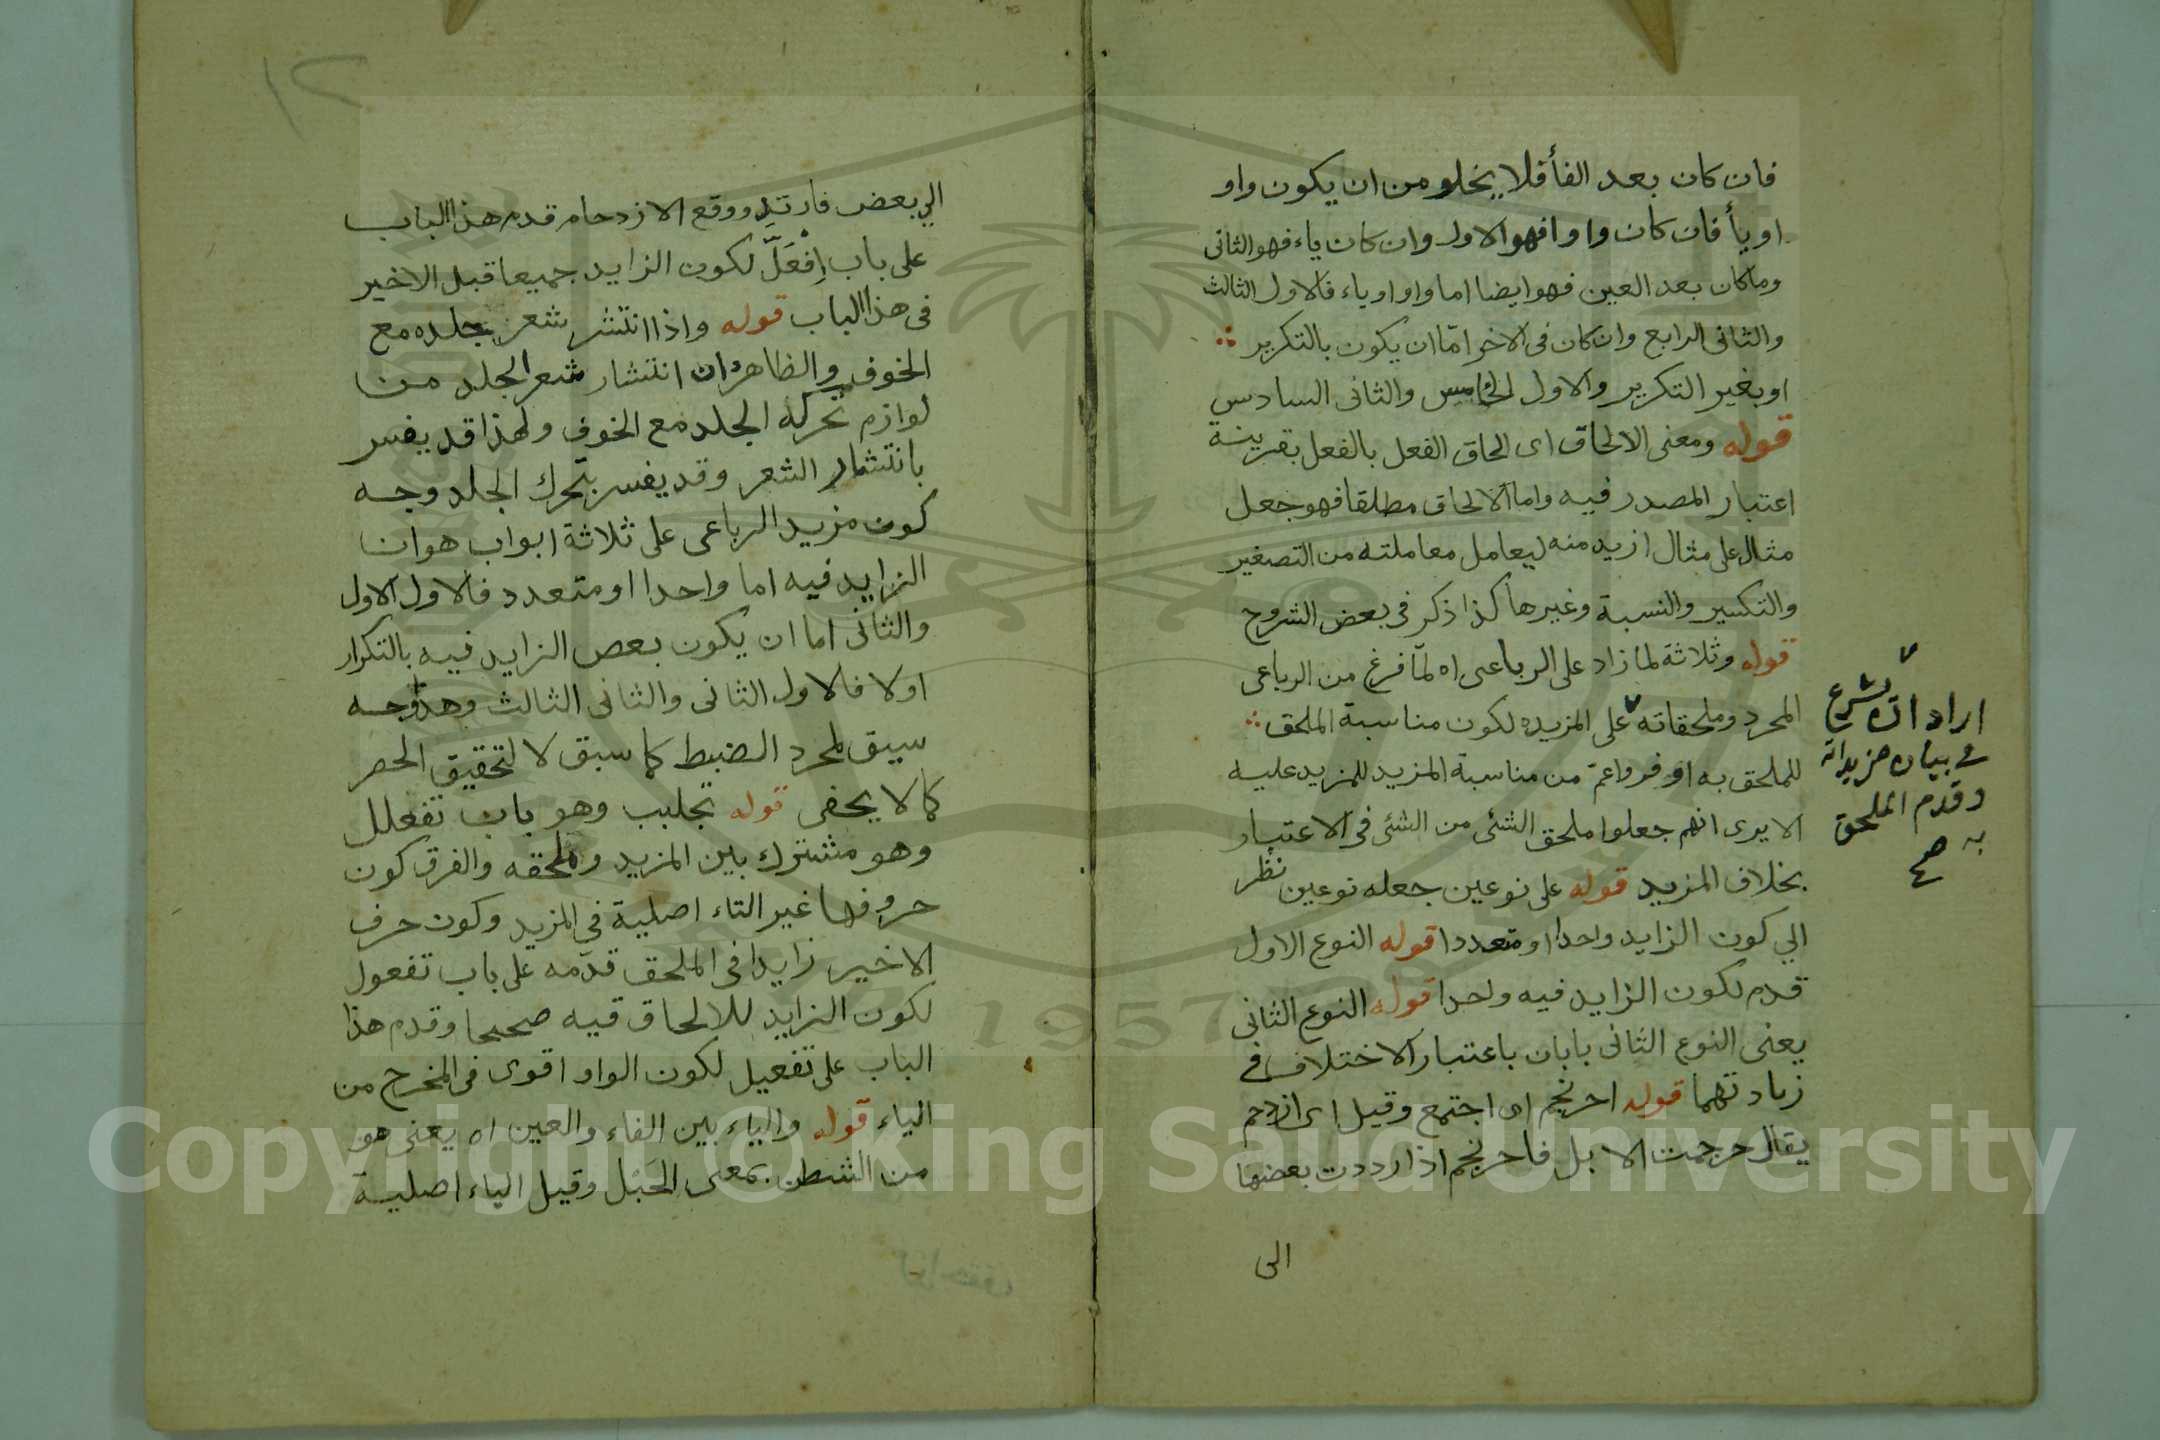 فان كان بعد الفأ فلا يخلو من ان يكون واو
او يأ فان كان واوا فهو الاول وان كان ياء فهو الثانى
وما كان بعد العين فهو ايضا اما واو او ياء فالاول الثالث
والثانى الرابع وان كان فى الاخر امّا ان يكون بالتكرير
او بغير التكرير والاول الخامس والثانى السادس
قوله ومعنى الالحاق اى الحاق الفعل بالفعل بقرينة
اعتبار المصدر فيه واما الالحاق مطلقا فهو جعل
مثال على مثال ازيد منه ليعامل معاملته من التصغير
والتكسير والنسبة وغيرها كذا ذكر فى بعض الشروح
قوله وثلاثة لما زاد على الرباعى اه لمّا فرغ من الرباعى
المجرد وملحقاته على المزيده لكون مناسبة الملحق
للملحق به اوفر واعمّ من مناسبة المزيد للمزيد عليه
الا يرى انهم جعلوا ملحق الشئى من الشئى فى الاعتبار
بخلاف المزيد قوله على نوعين جعله نوعين نظر
الي كون الزايد واحدا او متعددا قوله النوع الاول
قدم لكون الزايد فيه واحدا قوله النوع الثانى
يعنى النوع الثانى بابان باعتبار الاختلاف فے
زيادتهما قوله احرنجم اى اجتمع وقيل اى ازدحم
يقال حرجمت الابل فاحرنجم اذا رددت بعضها
الى
اراد ان يشرع
فے بيان مزيداته
وقدم الملحق
به صح
١٢
الي بعض فارتد ووقع الازدحام قدم هذا الباب
على باب اِفْعَلَّ لكون الزايد جميعا قبل الاخير
فى هذا الباب قوله واذا انتشر شعر جلده مع
الخوف والظاهر ان انتشار شعر الجلد من
لوازم تحركه الجلد مع الخوف ولهذا قد يفسر
بانتشار الشعر وقد يفسر بتحرك الجلد وجه
كون مزيد الرباعى على ثلاثة ابواب هو ان
الزايد فيه اما واحدا او متعدد فالاول الاول
والثانى اما ان يكون بعض الزايد فيه بالتكرار
اولا فالاول الثانى والثانى الثالث وهذا وجه
سيق لمجرد الضبط كما سبق لا لتحقيق الحصر
كما لا يخفى قوله تجلبب وهو باب تفعلل
وهو مشترك بين المزيد وملحقه والفرق كون
حروفها غير التاء اصلية في المزيد وكون حرف
الاخير زايدا فى الملحق قدّمه على باب تفعول
لكون الزايد للالحاق فيه صحيحا وقدم هذا
الباب على تفعيل لكون الواو اقوى فى المخرج من
الياء قوله والياء بين الفاء والعين اه يعنى هو
من الشطن بمعنى الحَبْل وقيل الياء اصلية
1957
Copyright © King Saud University